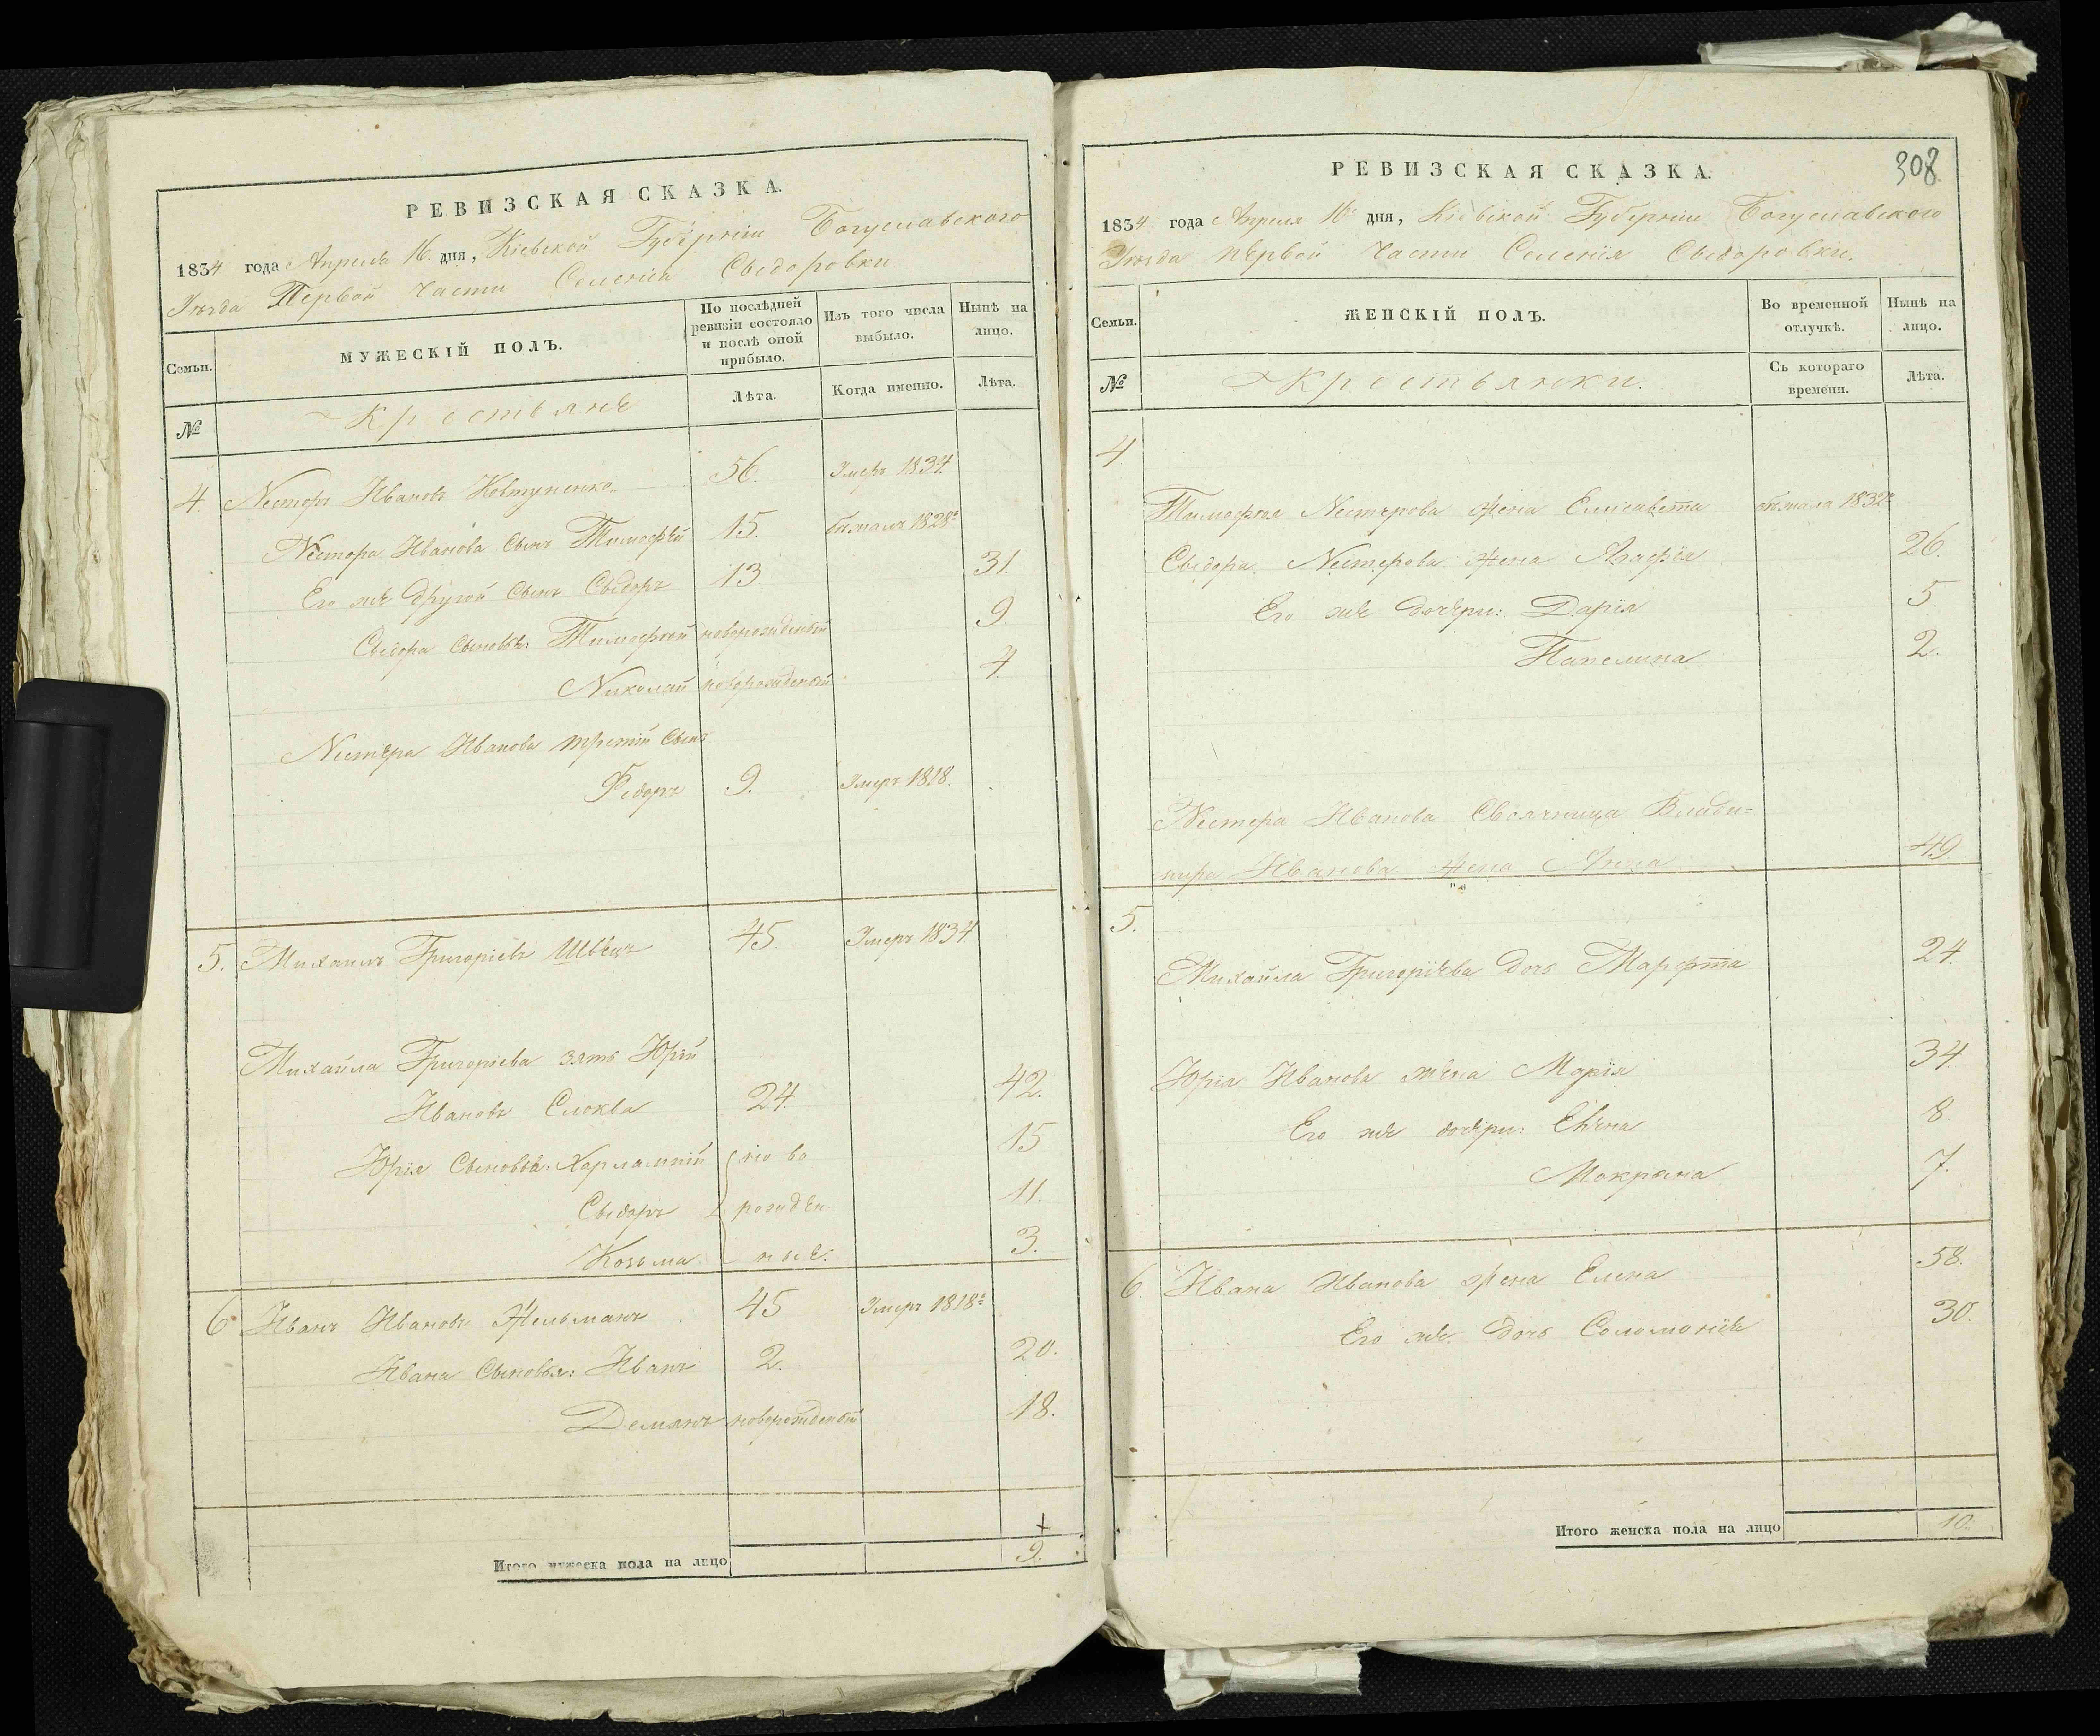 РЕВИЗСКАЯ СКАЗКА.
1834 года Апреля 16. дня, Кіевской Губерніи Богуславского
Уѣзда Первой Части Селенія Сыдоровки
Семьи.
МУЖЕСКІЙ ПОЛЪ.
По послѣдней ревизіи состояло и послѣ оной прибыло.
Изъ того числа выбыло.
Нынѣ на лицо.
№
Крестьяне
Лѣта.
Когда именно.
Лѣта.
4. Несторъ Ивановъ Ковтуненко 56. Умеръ 1834.
Нестора Иванова сынъ Тимофей 15. бѣжалъ 1828г
Его же другой сынъ Сыдоръ 13. 31.
Сыдора сыновья: Тимофей новорожденый 9.
Николай новорожденый 4.
Нестера Иванова третій сынъ
Федоръ 9. Умеръ 1818.
5. Михаилъ Григоріевъ Швецъ 45. Умеръ 1834
Михайла Григоріева зять Юрій
Ивановъ Слюква 24. 42.
Юрія сыновья: Харлампій ново 15
Сыдоръ рожден 11.
Козьма ные. 3.
6 Иванъ Ивановъ Жельманъ 45 Умеръ 1818г
Ивана сыновья: Иванъ 2. 20.
Демянъ новорожденый 18.
Итого мужеска пола на лицо 9.
308
РЕВИЗСКАЯ СКАЗКА.
1834 года Апреля 16 дня, Кіевской Губерніи Богуславского
Уѣзда первой Части Селенія Сыдоровки.
Семьи.
ЖЕНСКІЙ ПОЛЪ.
Во временной отлучкѣ.
Нынѣ на лицо.
№
Крестьянки.
Съ котораго времени.
Лѣта.
4.
Тимофея Нестерова жена Елисавета бѣжала 1832г
Сыдора Нестерова жена Агафія 26.
Его же дочери: Дарія 5.
2.
Нестера Иванова Влади=
мира Иванова жена Анна 49
5.
Михайла Григоріева дочь Марфта 24.
Юрія Иванова жена Марія 34.
Его же дочери: 8.
Мокрына 7.
6. Ивана Иванова жена Елена 58.
Его же дочь Соломонія 30.
Итого женска пола на лицо 10